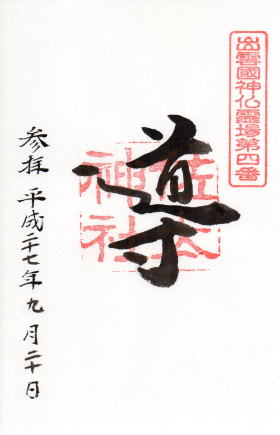 出雲國神仏霊場第四番
導
佐太
神社
参拝 平成二十七年九月二十日